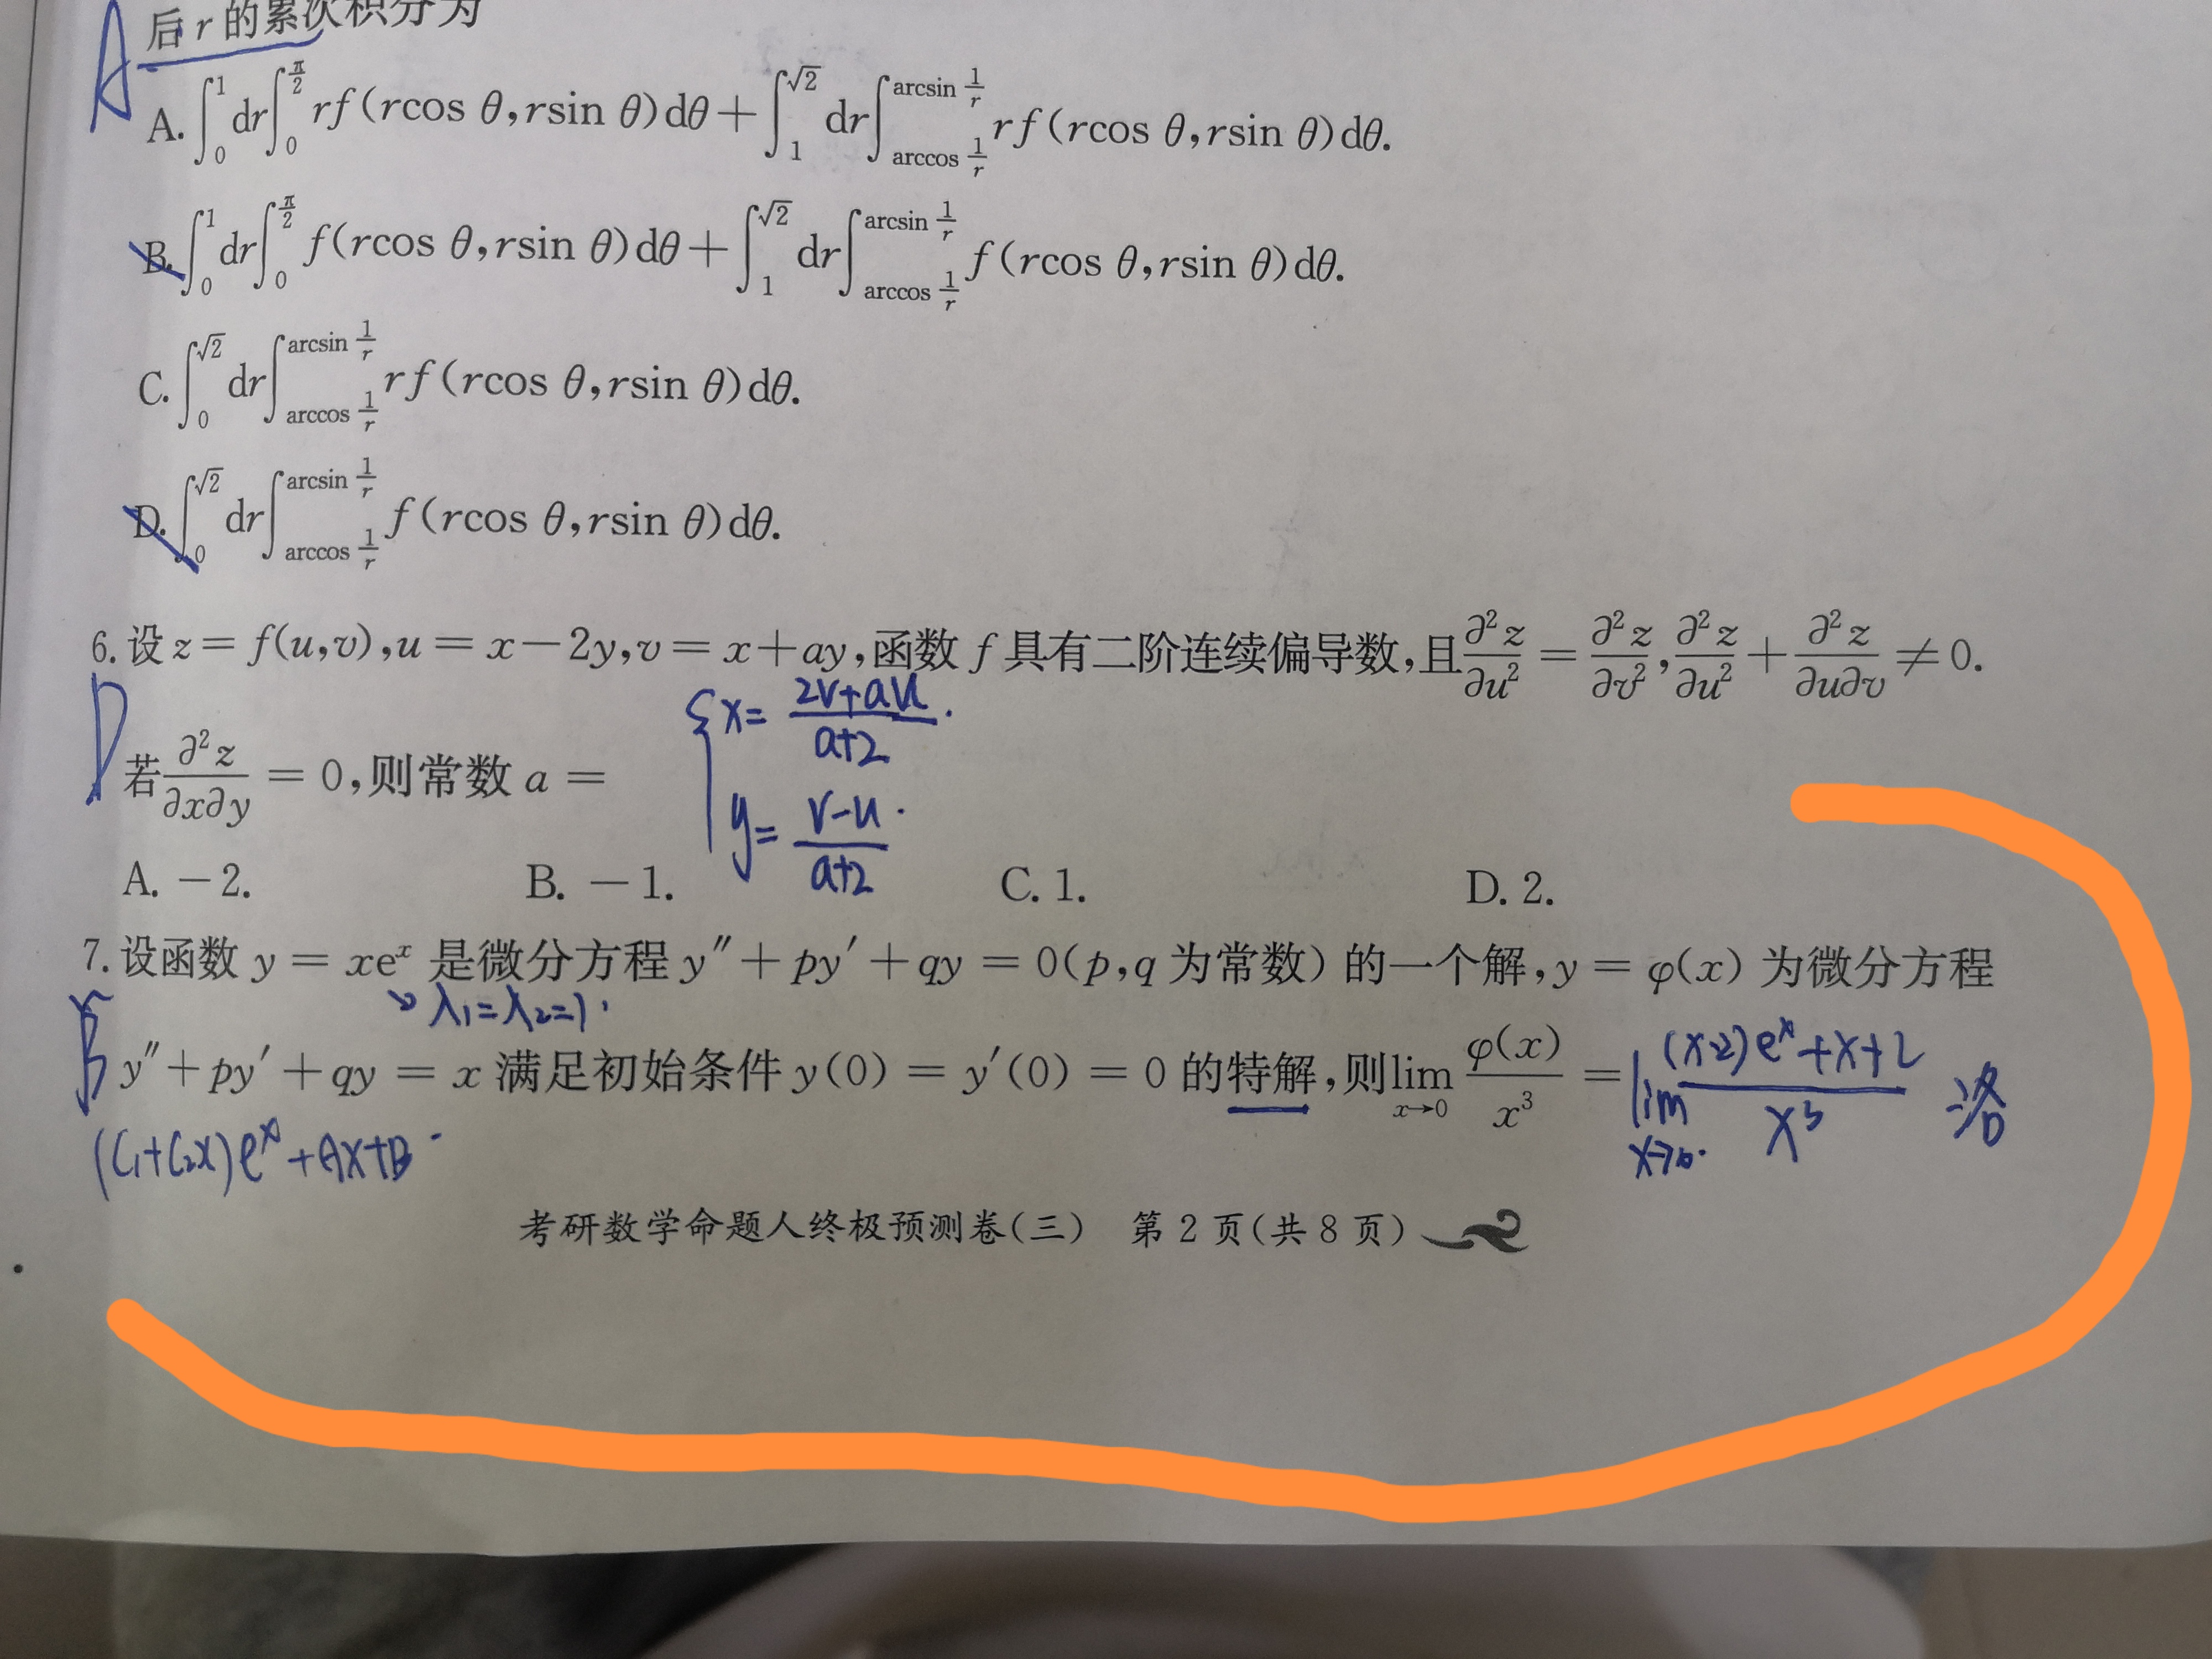 后 r 的累次积分为
A
A. ∫₀¹ dr ∫₀^{π/2} rf(rcos θ,rsin θ)dθ + ∫₁^{√2} dr ∫_{arccos 1/r}^{arcsin 1/r} rf(rcos θ,rsin θ)dθ.
B. ∫₀¹ dr ∫₀^{π/2} f(rcos θ,rsin θ)dθ + ∫₁^{√2} dr ∫_{arccos 1/r}^{arcsin 1/r} f(rcos θ,rsin θ)dθ.
C. ∫₀^{√2} dr ∫_{arccos 1/r}^{arcsin 1/r} rf(rcos θ,rsin θ)dθ.
D. ∫₀^{√2} dr ∫_{arccos 1/r}^{arcsin 1/r} f(rcos θ,rsin θ)dθ.
6. 设 z = f(u,v),u = x−2y,v = x+ay,函数 f 具有二阶连续偏导数,且 ∂²z/∂u² = ∂²z/∂v², ∂²z/∂u² + ∂²z/∂u∂v ≠ 0.
{ x= (2v+au)/(a+2) .
D
若 ∂²z/∂x∂y = 0,则常数 a =
y= (v-u)/(a+2) .
A. −2. B. −1. C. 1. D. 2.
7. 设函数 y = xeˣ 是微分方程 y″ + py′ + qy = 0(p,q 为常数) 的一个解,y = φ(x) 为微分方程
λ₁=λ₂=1.
B
y″ + py′ + qy = x 满足初始条件 y(0) = y′(0) = 0 的特解,则 lim_{x→0} φ(x)/x³ = lim_{x→0} ((x-2)eˣ+x+2)/x³ 洛
(C₁+C₂x)eˣ+Ax+B
考研数学命题人终极预测卷(三) 第 2 页(共 8 页)